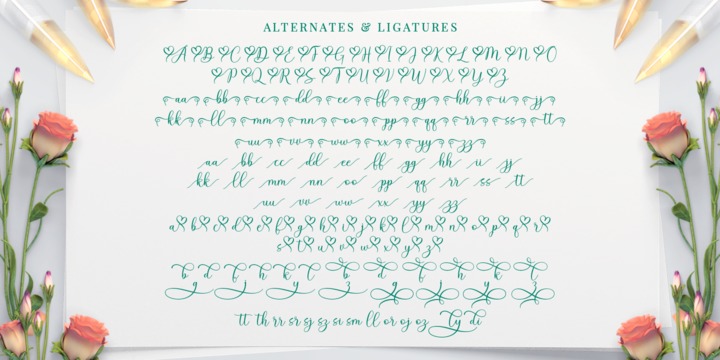 ALTERNATES & LIGATURES
A B C D E F G H I J K L M N O
P Q R S T U V W X Y Z
aa bb cc dd ee ff gg hh ii jj
kk ll mm nn oo pp qq rr ss tt
uu vv ww xx yy zz
aa bb cc dd ee ff gg hh ii jj
kk ll mm nn oo pp qq rr ss tt
uu vv ww xx yy zz
a b c d e f g h i j k l m n o p q r
s t u v w x y z
b d f h k l b d f h k l
g j y z g j y z
tt th rr sr sj sz si sm ll or oj oz ty di